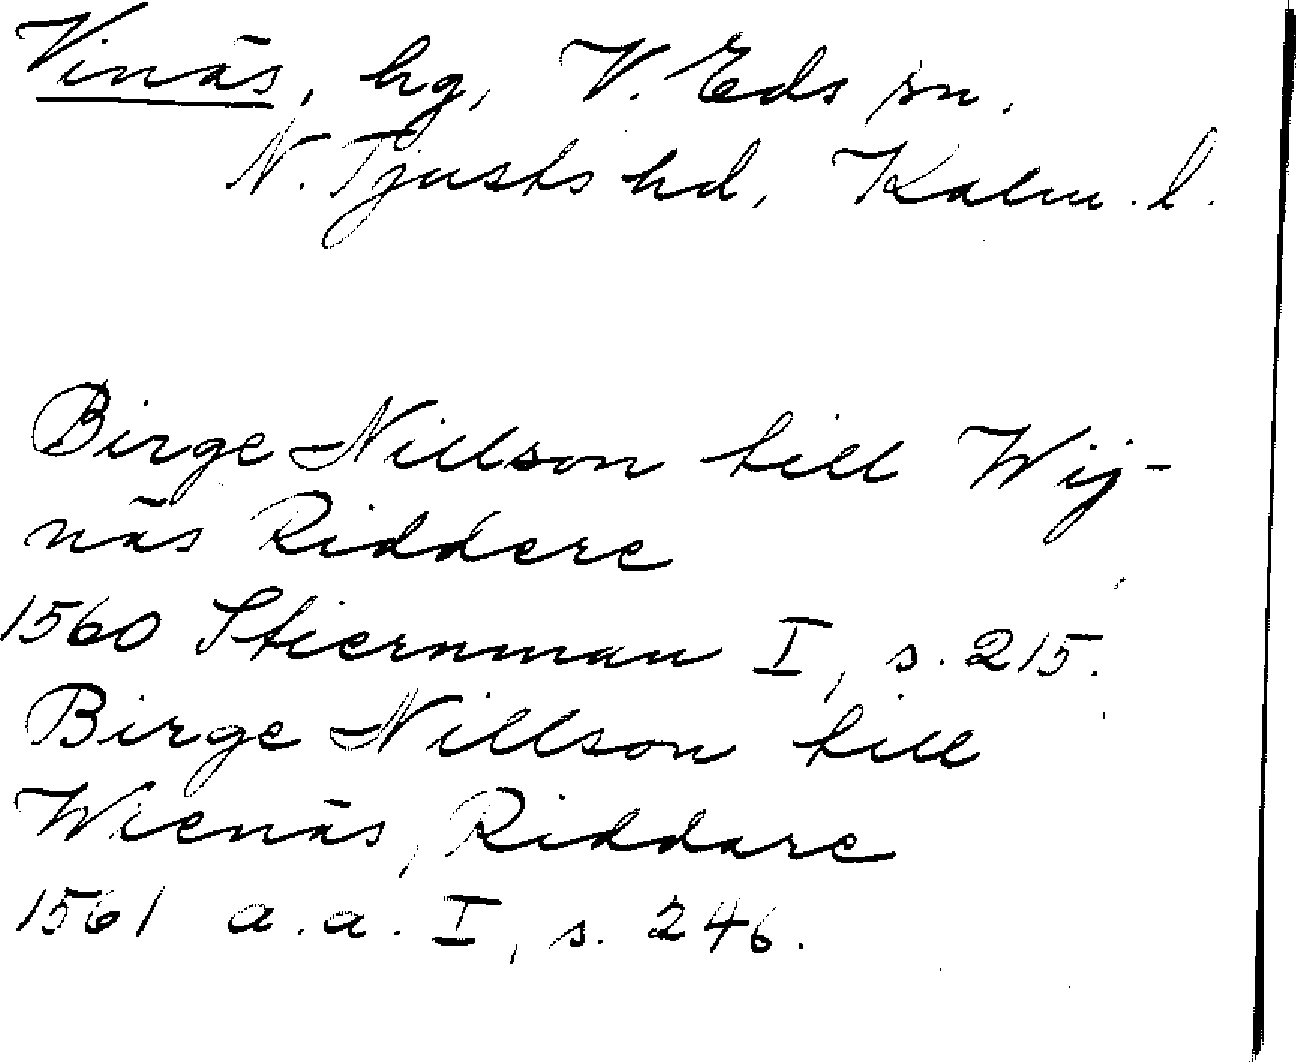 Vinäs, hg, V. Eds sn.
N. Tjusts hd, Kalm. l.
Birge Nillson till Wij-
näs Riddere
1560 Stiernman I, s. 215.
Birge Nillson till
Wienäs, Riddare
1561 a.a. I, s. 246.